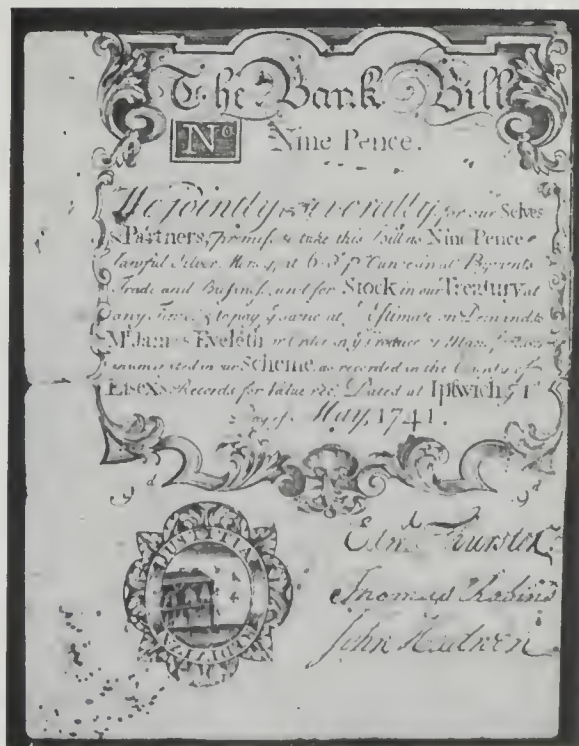 The Bank Bill
No Nine Pence.
We jointly & severally, for our Selves
& Partners, promise to take this Bill as Nine Pence
lawful Silver Money, at 6/8 pr Ounce in all Paymts
Trade and Business, and for Stock in our Treasury at
any Time, & to pay ye same at ye Estimate on Demand to
Mr James Eveleth or Order in ye Produce or
enumerated in our Scheme, as recorded in the County of
Essex Records for Value recd Dated at Ipswich ye 1st
Day of May, 1741.
9d 9d
JUSTITIA
Edwd Thurston
Thomas
John Hadwen